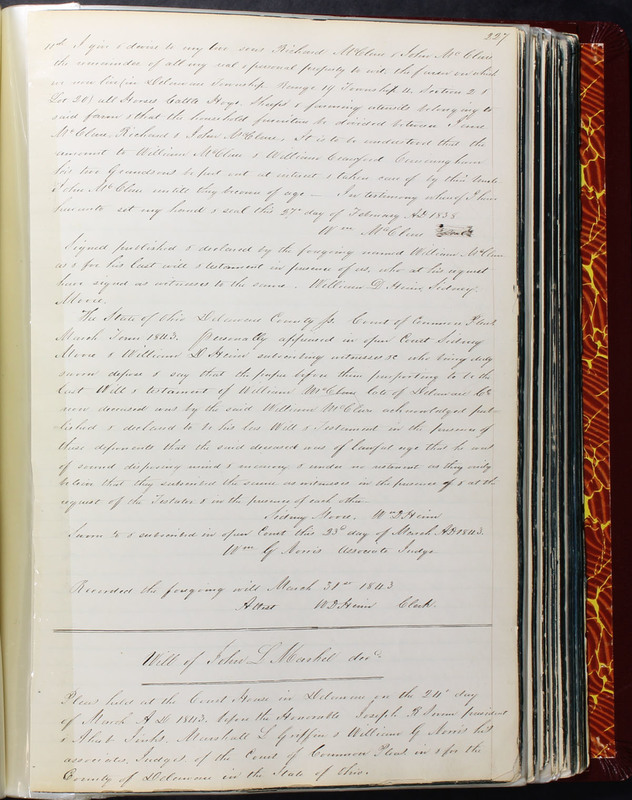 227
11th I give & devise to my two sons Richard McClure & John McClure
the remainder of all my real & personal property to wit, the farm on which
we now live (in Delaware Township Range 19 Township 4, Section 2 &
Lot 20) all Horses Cattle Hogs, Sheeps & farming utensils belonging to
said farm & that the household furniture be divided between Jane
McClure, Richard & John McClure. It is to be understood that the
amount to William McClure & William Crawford Cunningham
his two Grandsons be put out at interest & taken care of by their Uncle
John McClure untill they become of age — In testimony whereof I have
hereunto set my hand & seal this 27th day of February AD 1838
Wm McClure Seal
Signed published & declared by the foregoing named William McClure
as & for his last will & testament in presence of us, who at his request
have signed as witnesses to the same. William D Heim, Sidney
Moore.
The State of Ohio Delaware County Ss. Court of Common Pleas
March Term 1843. Personally appeared in open Court Sidney
Moore & William D Heim subscribing witnesses &c who being duly
sworn depose & say that the paper before them purporting to be the
last Will & testament of William McClure late of Delaware Co
now deceased was by the said William McClure acknowledged pub-
lished & declared to be his last Will & Testament in the presence of
these deponents that the said deceased was of lawful age that he was
of sound disposing mind & memory & under no restraint as they verily
believe that they subscribed the same as witnesses in the presence of & at the
request of the Testator & in the presence of each other
Sidney Moore. Wm D Heim
Sworn to & subscribed in open Court this 23d day of March AD 1843.
Wm G Norris Associate Judge
Recorded the foregoing will March 31st 1843
Attest W D Heim Clerk.
Will of John L Markel decd.
Pleas held at the Court House in Delaware on the 24th day
of March A D 1843. before the Honorable Joseph R Swan president
& Ahab Jinks, Marshall L Griffin & William G Norris his
associates, Judges of the Court of Common Pleas in & for the
County of Delaware in the State of Ohio.